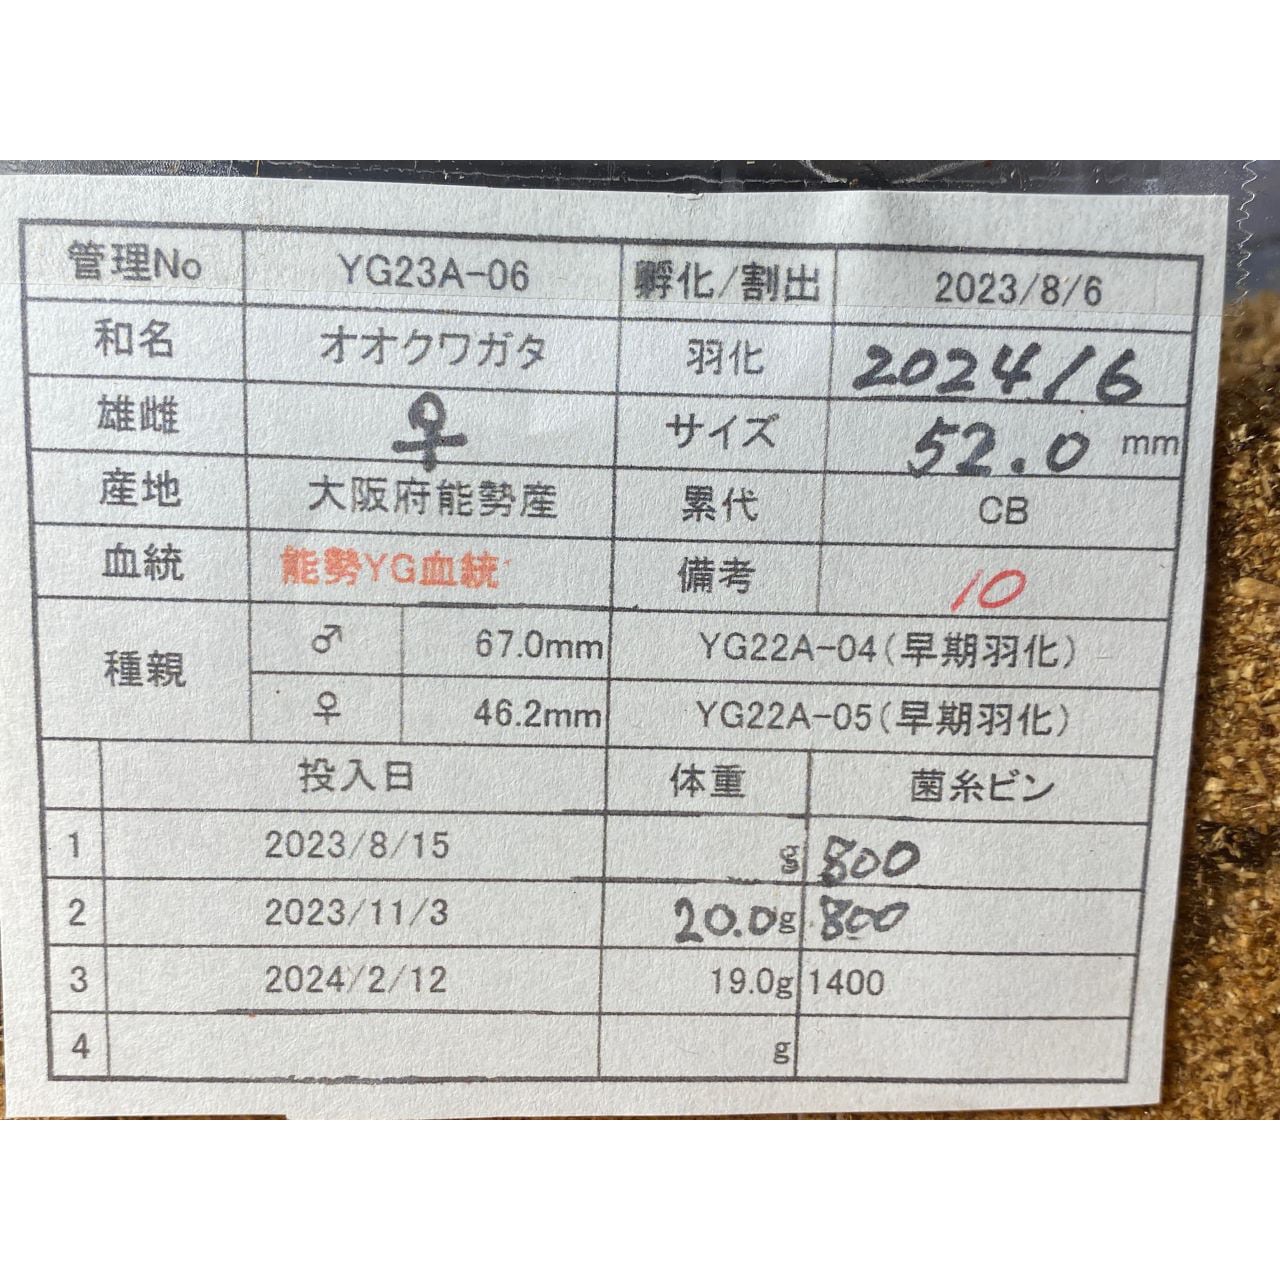 管理No YG23A-06 孵化/割出 2023/8/6
和名 オオクワガタ 羽化 2024/6
雄雌 ♀ サイズ 52.0 mm
産地 大阪府能勢産 累代 CB
血統 能勢YG血統 備考 10
種親 ♂ 67.0mm YG22A-04(早期羽化)
♀ 46.2mm YG22A-05(早期羽化)
投入日 体重 菌糸ビン
1 2023/8/15 g 800
2 2023/11/3 20.0g 800
3 2024/2/12 19.0g 1400
4 g